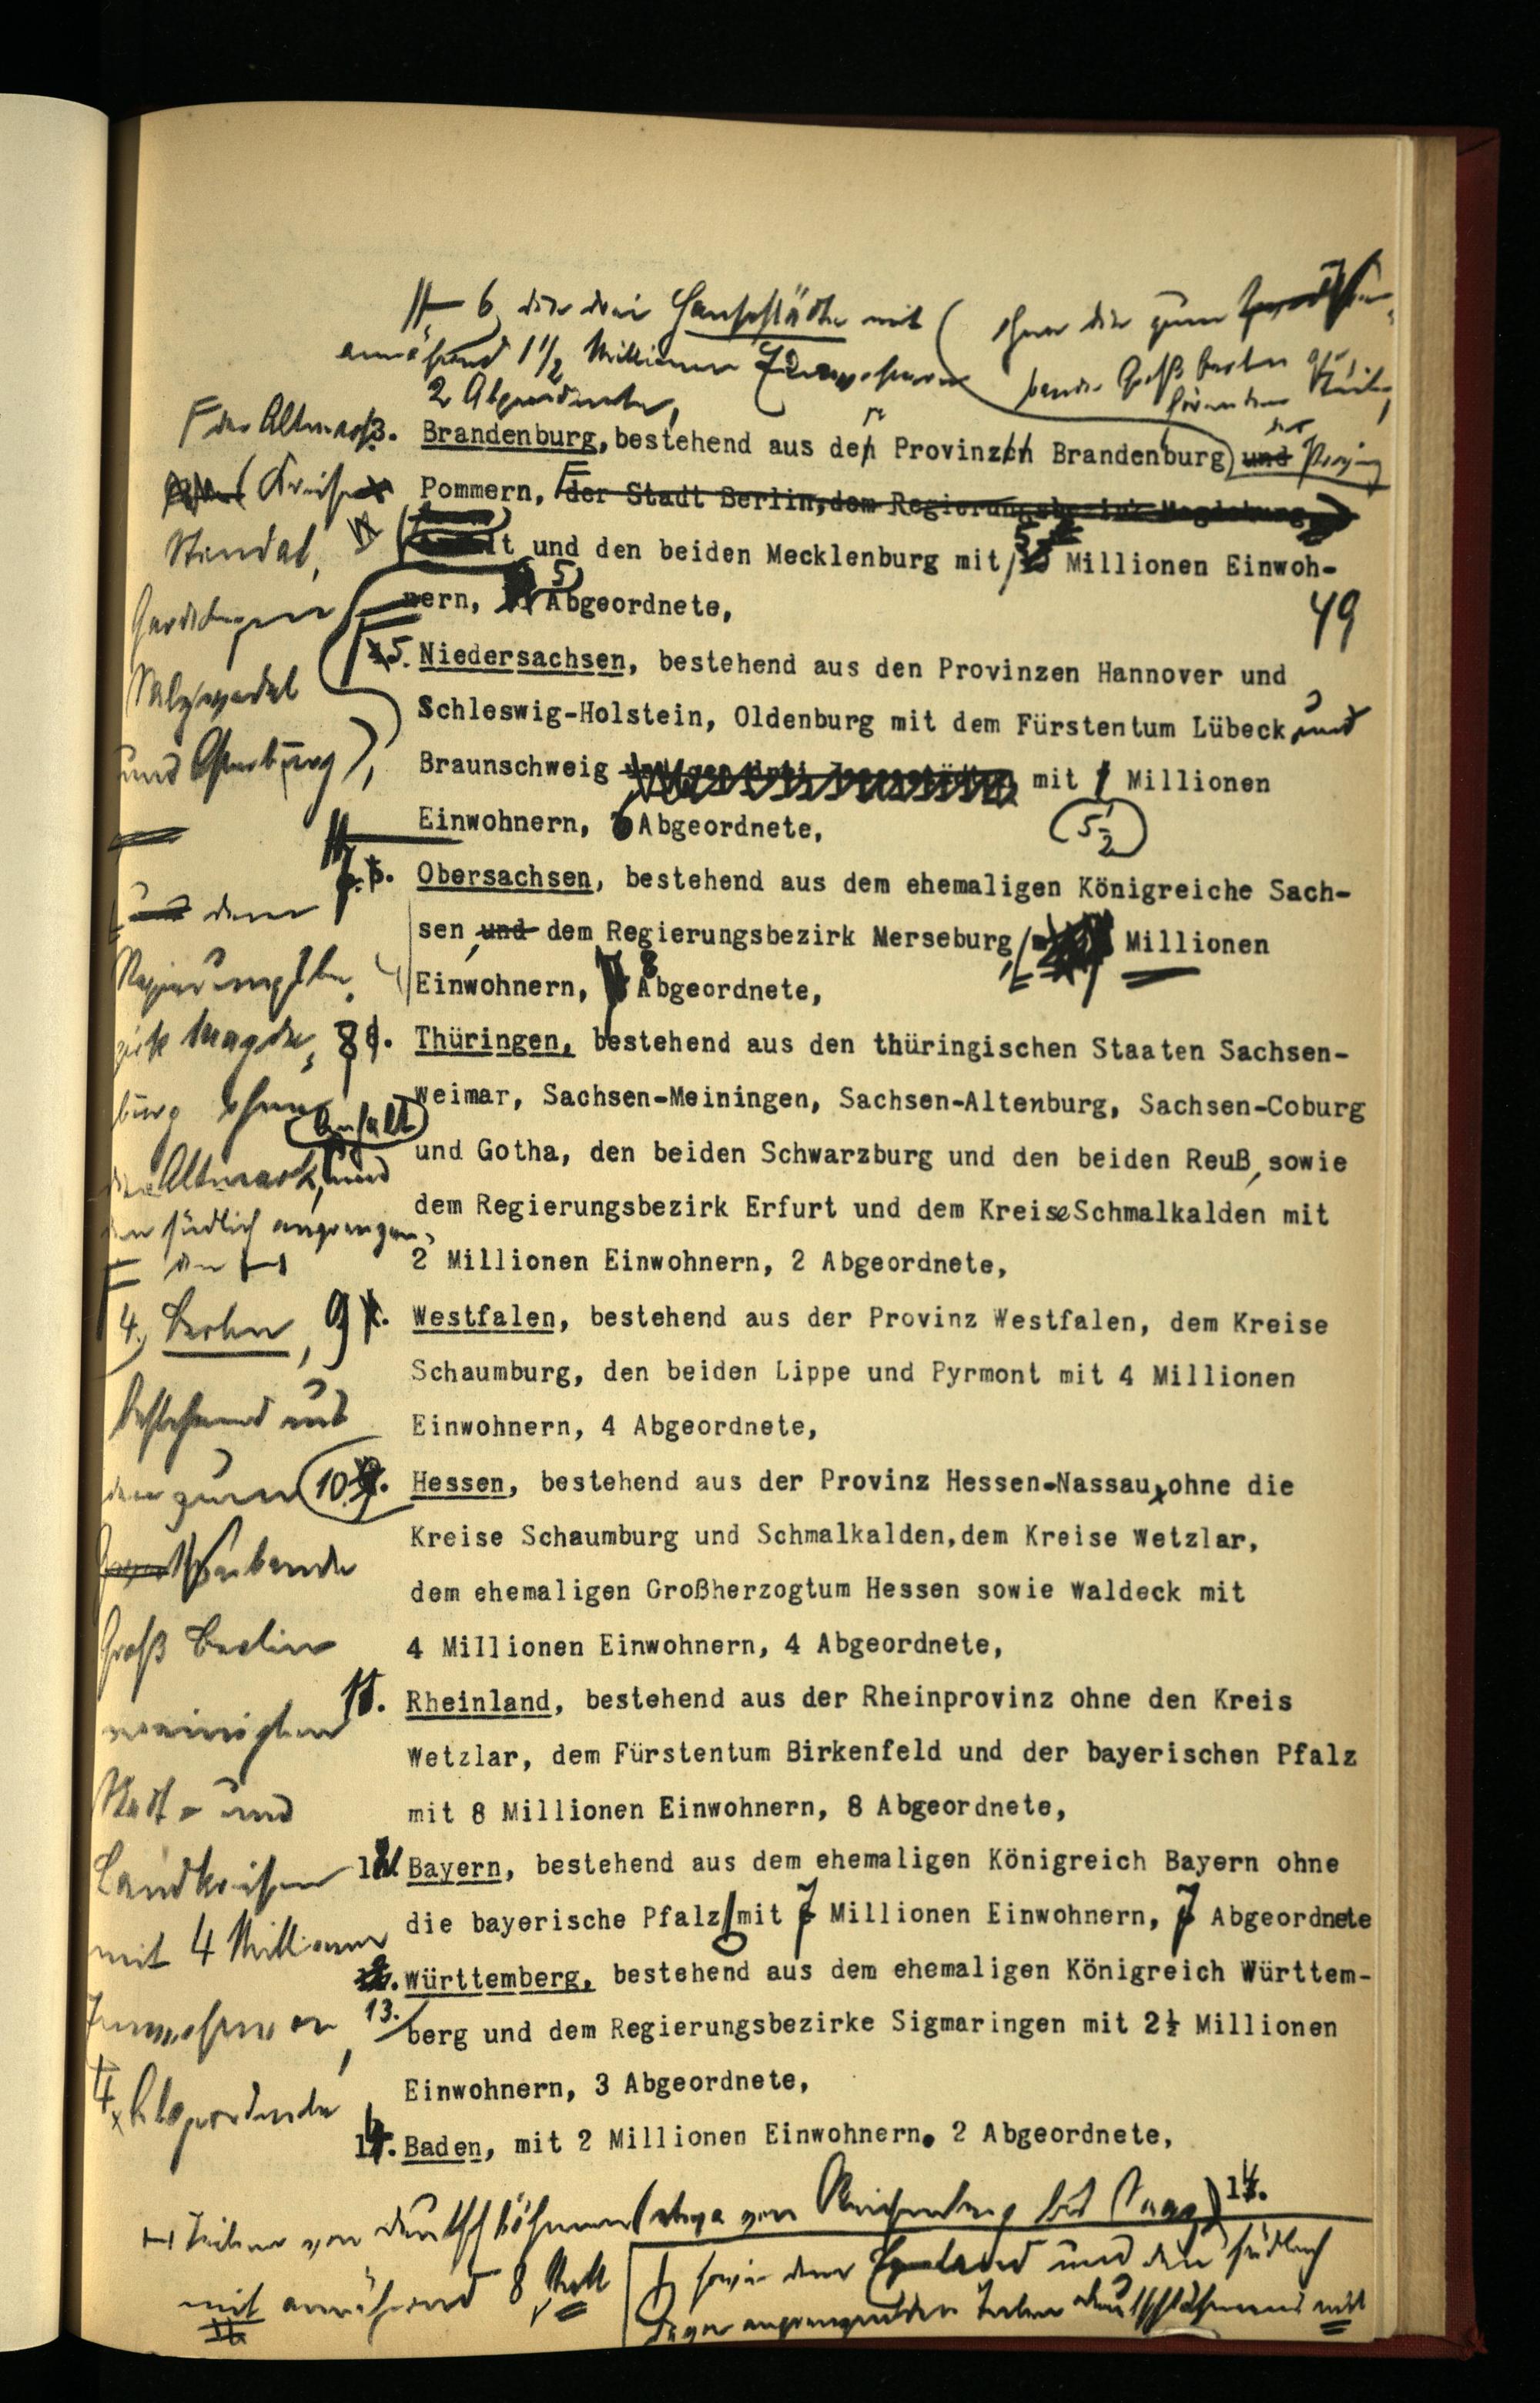 6, die drei Hansestädte mit
annähernd 1 1/2 Millionen Einwohnern
2 Abgeordnete,
ohne die zum
Groß Berlin
der Altmark
3. Brandenburg, bestehend aus der Provinz Brandenburg) und der Provinz
Kreise
Pommern, der Stadt Berlin, dem Regierungsbezirk Magdeburg,
Stendal,
und den beiden Mecklenburg mit 5 Millionen Einwoh-
Gardelegen
nern, 5 Abgeordnete,
49
5. Niedersachsen, bestehend aus den Provinzen Hannover und
Salzwedel
Schleswig-Holstein, Oldenburg mit dem Fürstentum Lübeck und
und Osterburg),
Braunschweig mit Millionen
5 1/2
Einwohnern, 6 Abgeordnete,
7. Obersachsen, bestehend aus dem ehemaligen Königreiche Sach-
dem
sen, und dem Regierungsbezirk Merseburg, Millionen
Regierungsbe-
Einwohnern, 8 Abgeordnete,
zirk Magde-
8. Thüringen, bestehend aus den thüringischen Staaten Sachsen-
burg ohne
Weimar, Sachsen-Meiningen, Sachsen-Altenburg, Sachsen-Coburg
Anhalt
und Gotha, den beiden Schwarzburg und den beiden Reuß, sowie
die Altmark, und
dem Regierungsbezirk Erfurt und dem Kreise Schmalkalden mit
den südlich angrenzen-
2 Millionen Einwohnern, 2 Abgeordnete,
den
4. Berlin,
9. Westfalen, bestehend aus der Provinz Westfalen, dem Kreise
Schaumburg, den beiden Lippe und Pyrmont mit 4 Millionen
bestehend aus
Einwohnern, 4 Abgeordnete,
den zum
10. Hessen, bestehend aus der Provinz Hessen-Nassau, ohne die
Kreise Schaumburg und Schmalkalden, dem Kreise Wetzlar,
dem ehemaligen Großherzogtum Hessen sowie Waldeck mit
Groß Berlin
4 Millionen Einwohnern, 4 Abgeordnete,
vereinigten
11. Rheinland, bestehend aus der Rheinprovinz ohne den Kreis
Wetzlar, dem Fürstentum Birkenfeld und der bayerischen Pfalz
Stadt- und
mit 8 Millionen Einwohnern, 8 Abgeordnete,
Landkreisen
12. Bayern, bestehend aus dem ehemaligen Königreich Bayern ohne
die bayerische Pfalz mit 7 Millionen Einwohnern, 7 Abgeordnete
mit 4 Millionen
13. Württemberg, bestehend aus dem ehemaligen Königreich Württem-
Einwohnern,
berg und dem Regierungsbezirke Sigmaringen mit 2½ Millionen
Einwohnern, 3 Abgeordnete,
4 Abgeordnete
14. Baden, mit 2 Millionen Einwohnern, 2 Abgeordnete,
Teilen von Deutschböhmen (etwa von Reichenberg bis Saaz)
mit annähernd 8 Mill
sowie dem Egerland und den südlich
davon angrenzenden Teilen Deutschböhmens mit